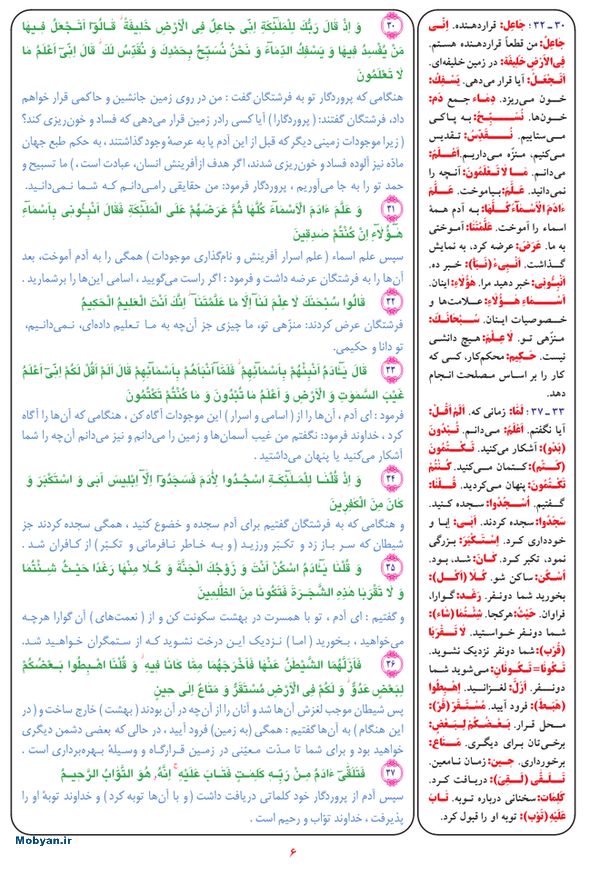 ۳۰ ـ ۳۲؛ جاعِل: قراردهنده. اِنّی
جاعِلٌ: من قطعاً قراردهنده هستم.
فِی الْاَرْضِ خَلیفَةً: در زمین خلیفه‌ای.
اَتَجْعَلُ: آیا قرار می‌دهی. یَسْفِکُ:
خون می‌ریزد. دِماء: جمع دَم:
خون‌ها. نُسَبِّحُ: به پاکی
می‌ستاییم. نُقَدِّسُ: تقدیس
می‌کنیم، منزّه می‌داریم. اَعْلَمُ:
می‌دانم. مَا لَا تَعْلَمُونَ: آنچه را
نمی‌دانید. عَلَّمَ: بیاموخت. عَلَّمَ
ءَادَمَ الْاَسْمَآءَ کُلَّهَا: به آدم همهٔ
اسماء را آموخت. عَلَّمْتَنَا: آموختی
به ما. عَرَضَ: عرضه کرد، به نمایش
گذاشت. اَنْبِیءْ (نَبَأ): خبر ده.
اَنْبِئُونی: خبر دهید مرا. هٰؤُلاءِ: اینان.
اَسْمَاءِ هٰؤُلاءِ: علامت‌ها و
خصوصیات اینان. سُبْحَانَکَ:
منزّهی تو. لَا عِلْمَ: هیچ دانشی
نیست. حَکیم: محکم‌کار، کسی که
کار را بر اساس مصلحت انجام
دهد.
۳۳ ـ ۳۷؛ لَمَّا: زمانی که. اَلَمْ اَقُلْ:
آیا نگفتم. اَعْلَمُ: می‌دانم. تُبْدُونَ
(بَدْو): آشکار می‌کنید. تَکْتُمُونَ
(کَتْم): کتمان می‌کنید. کُنْتُمْ
تَکْتُمُونَ: پنهان می‌کردید. قُلْنَا:
گفتیم. اُسْجُدُوا: سجده کنید.
سَجَدُوا: سجده کردند. اَبیٰ: اِبا و
خودداری کرد. اِسْتَکْبَرَ: بزرگی
نمود، تکبر کرد. کَانَ: شد، بود.
اُسْکُنْ: ساکن شو. کُلَا (اَکْل):
بخورید شما دونفر. رَغَد: گوارا،
فراوان. حَیْثُ: هرکجا. شِئْتُمَا (شَاءَ):
شما دونفر خواستید. لَا تَقْرَبَا
(قُرْب): شما دونفر نزدیک نشوید.
تَکُونَا = تَکُونَانِ: می‌شوید شما
دونفر. اَزَلَّ: لغزانید. اِهْبِطُوا
(هَبْط): فرود آیید. مُسْتَقَرّ (قَرّ):
محل قرار. بَعْضُکُمْ لِبَعْضٍ:
برخی‌تان برای دیگری. مَتَاع:
برخورداری. حین: زمان نامعین.
تَلَقّٰی (لَقِیَ): دریافت کرد.
کَلِمَات: سخنانی درباره توبه. تَابَ
عَلَیْهِ (تَوْب): توبه او را قبول کرد.
۳۰ وَ اِذْ قَالَ رَبُّکَ لِلْمَلٰٓئِکَةِ اِنّی جَاعِلٌ فِی الْاَرْضِ خَلیفَةً قَالُوٓا اَتَجْعَلُ فیهَا
مَنْ یُفْسِدُ فیهَا وَ یَسْفِکُ الدِّمَآءَ وَ نَحْنُ نُسَبِّحُ بِحَمْدِکَ وَ نُقَدِّسُ لَکَ قَالَ اِنّیٓ اَعْلَمُ مَا
لَا تَعْلَمُونَ
هنگامی که پروردگار تو به فرشتگان گفت : من در روی زمین جانشین و حاکمی قرار خواهم
داد، فرشتگان گفتند: (پروردگارا) آیا کسی رادر زمین قرار می‌دهی که فساد و خون‌ریزی کند؟
( زیرا موجودات زمینی دیگر که قبل از این آدم پا به عرصهٔ وجود گذاشتند ، به حکم طبع جهان
مادّه نیز آلوده فساد و خون‌ریزی شدند، اگر هدف ازآفرینش انسان، عبادت است ، ) ما تسبیح و
حمد تو را به جا می‌آوریم ، پروردگار فرمود: من حقایقی رامی‌دانـم کـه شمـا نمی‌دانـیـد.
۳۱ وَ عَلَّمَ ءَادَمَ الْاَسْمَآءَ کُلَّهَا ثُمَّ عَرَضَهُمْ عَلَی الْمَلٰٓئِکَةِ فَقَالَ اَنْبِئُونی بِاَسْمَآءِ
هٰٓؤُلَآءِ اِنْ کُنْتُمْ صٰدِقینَ
سپس علم اسماء ( علم اسرار آفرینش و نام‌گذاری موجودات ) همگی را به آدم آموخت، بعد
آن‌ها را به فرشتگان عرضه داشت و فرمود : اگر راست می‌گویید ، اسامی این‌ها را برشمارید .
۳۲ قَالُوا سُبْحٰنَکَ لَا عِلْمَ لَنَآ اِلَّا مَا عَلَّمْتَنَآ اِنَّکَ اَنْتَ الْعَلیمُ الْحَکیمُ
فرشتگان عرض کردند: منزّهی تو، ما چیزی جز آن‌چه به مـا تعلیم داده‌ای، نمی‌دانیـم،
تو دانا و حکیمی.
۳۳ قَالَ یٰٓـَٔادَمُ اَنْبِئْهُمْ بِاَسْمَآئِهِمْ فَلَمَّآ اَنْبَاَهُمْ بِاَسْمَآئِهِمْ قَالَ اَلَمْ اَقُلْ لَکُمْ اِنّیٓ اَعْلَمُ
غَیْبَ السَّمٰوٰتِ وَ الْاَرْضِ وَ اَعْلَمُ مَا تُبْدُونَ وَ مَا کُنْتُمْ تَکْتُمُونَ
فرمود : ای آدم ، آن‌ها را از ( اسامی و اسرار ) این موجودات آگاه کن ، هنگامی که آن‌ها را آگاه
کرد ، خداوند فرمود: نگفتم من غیب آسمان‌ها و زمین را می‌دانم و نیز می‌دانم آن‌چه را شما
آشکار می‌کنید یا پنهان می‌داشتید .
۳۴ وَ اِذْ قُلْنَـا لِلْمَلٰٓئِکَـةِ اسْجُـدُوا لِاٰدَمَ فَسَجَدُوٓا اِلَّآ اِبْلیسَ اَبیٰ وَ اسْتَکْبَرَ وَ
کَانَ مِنَ الْکٰفِرینَ
و هنگامی که به فرشتگان گفتیم برای آدم سجده و خضوع کنید ، همگی سجده کردند جز
شیطان که سـر بـاز زد و تکبّر ورزیـد ( و بـه خـاطر نـافرمانی و تکبّر ) از کـافران شـد .
۳۵ وَ قُلْنَا یٰٓـَٔادَمُ اسْکُنْ اَنْتَ وَ زَوْجُکَ الْجَنَّةَ وَ کُـلَا مِنْهَا رَغَدًا حَیْثُ شِئْتُمَا
وَ لَا تَقْرَبَا هٰذِهِ الشَّجَرَةَ فَتَکُونَا مِنَ الظّٰلِمینَ
و گفتیم : ای آدم ، تو با همسرت در بهشت سکونت کن و از ( نعمت‌های ) آن گوارا هرچـه
می‌خواهید ، بـخورید ( امـا ) نـزدیک این درخت نشوید که از ستمگران خـواهیـد شـد.
۳۶ فَاَزَلَّهُمَا الشَّیْطٰنُ عَنْهَا فَاَخْرَجَهُمَا مِمَّا کَانَا فیهِ وَ قُلْنَا اهْبِطُوا بَعْضُکُمْ
لِبَعْضٍ عَدُوٌّ وَ لَکُمْ فِی الْاَرْضِ مُسْتَقَرٌّ وَ مَتَاعٌ اِلیٰ حینٍ
پس شیطان موجب لغزش آن‌ها شد و آنان را از آن‌چه در آن بودند ( بهشت ) خارج ساخت و ( در
این هنگام ) به آن‌ها گفتیم : همگی (به زمین) فرود آیید ، در حالی که بعضی دشمن دیگری
خواهید بود و برای شما تا مـدّت معیّنی در زمـین قـرارگاه و وسـیلهٔ بهـره‌برداری است .
۳۷ فَتَلَقّیٰٓ ءَادَمُ مِـنْ رَبِّـهِ کَلِمٰتٍ فَتَـابَ عَلَیْـهِ اِنَّهُ هُوَ التَّوَّابُ الرَّحیمُ
سپس آدم از پروردگار خود کلماتی دریافت داشت (و با آن‌ها توبه کرد ) و خداوند توبهٔ او را
پذیرفت ، خداوند توّاب و رحیم است .
Mobyan.ir
۶